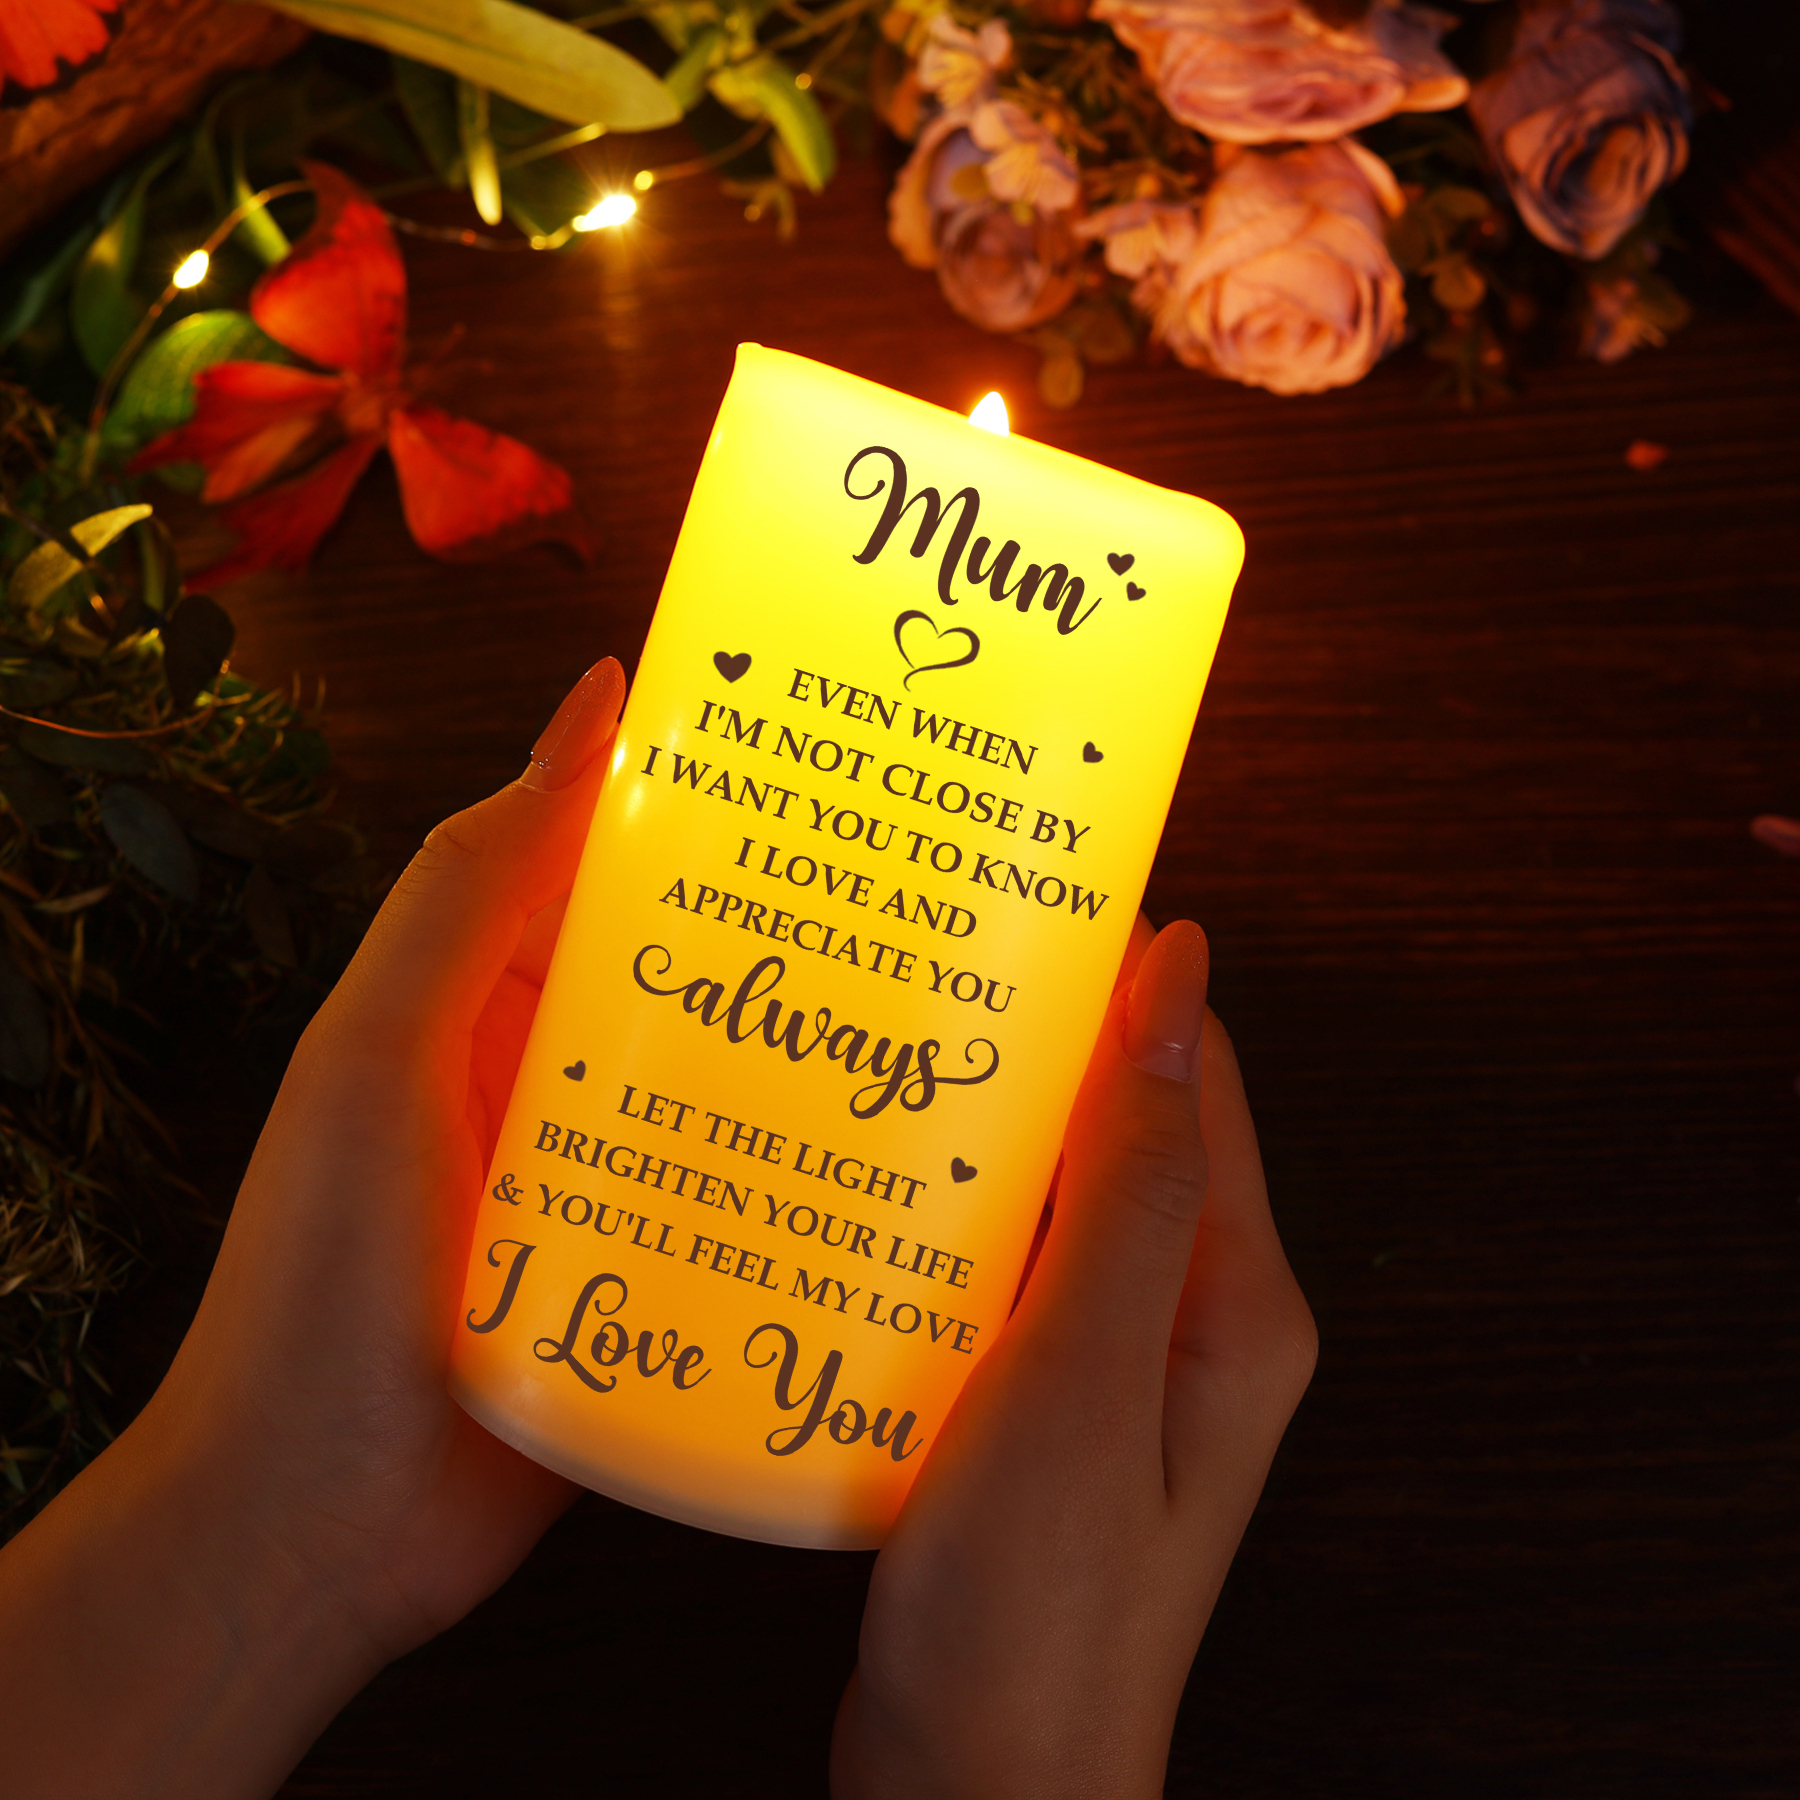 Mum
EVEN WHEN
I'M NOT CLOSE BY
I WANT YOU TO KNOW
I LOVE AND
APPRECIATE YOU
always
LET THE LIGHT
BRIGHTEN YOUR LIFE
& YOU'LL FEEL MY LOVE
I Love You